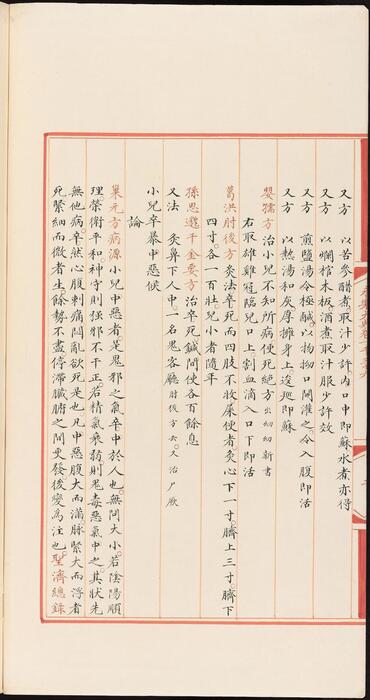 又方　以苦參醋煮取汁少許內口中即蘇水煮亦得
又方　以爛棺木板酒煮取汁服少許效
又方　煎鹽湯令極鹹以物拗口開灌之令入腹即活
又方　以熱湯和灰厚擁身上逡廵即蘇
嬰孺方　治小兒不知所病便死絕方出幼幼新書
右取雄雞冠臨兒口上割血滴入口下即活
葛洪肘後方　灸法卒死而四肢不收屎便者灸心下一寸臍上三寸臍下
四寸各一百壯兒小者隨年
孫思邈千金要方　治卒死鍼間使各百餘息
又法　灸鼻下人中一名鬼客廳肘後方云又治尸厥
小兒卒暴中惡候
論
巢元方病源　小兒中惡者是鬼邪之氣卒中於人也無問大小若陰陽順
理榮衛平和神守則强邪不干正若精氣衰弱則鬼毒惡氣中之其狀先
無他病卒然心腹刺痛悶亂欲死是也凡中惡腹大而滿脉緊大而浮者
死緊細而微者生餘勢不盡停滯臟腑之間更發後變為注也聖濟總錄